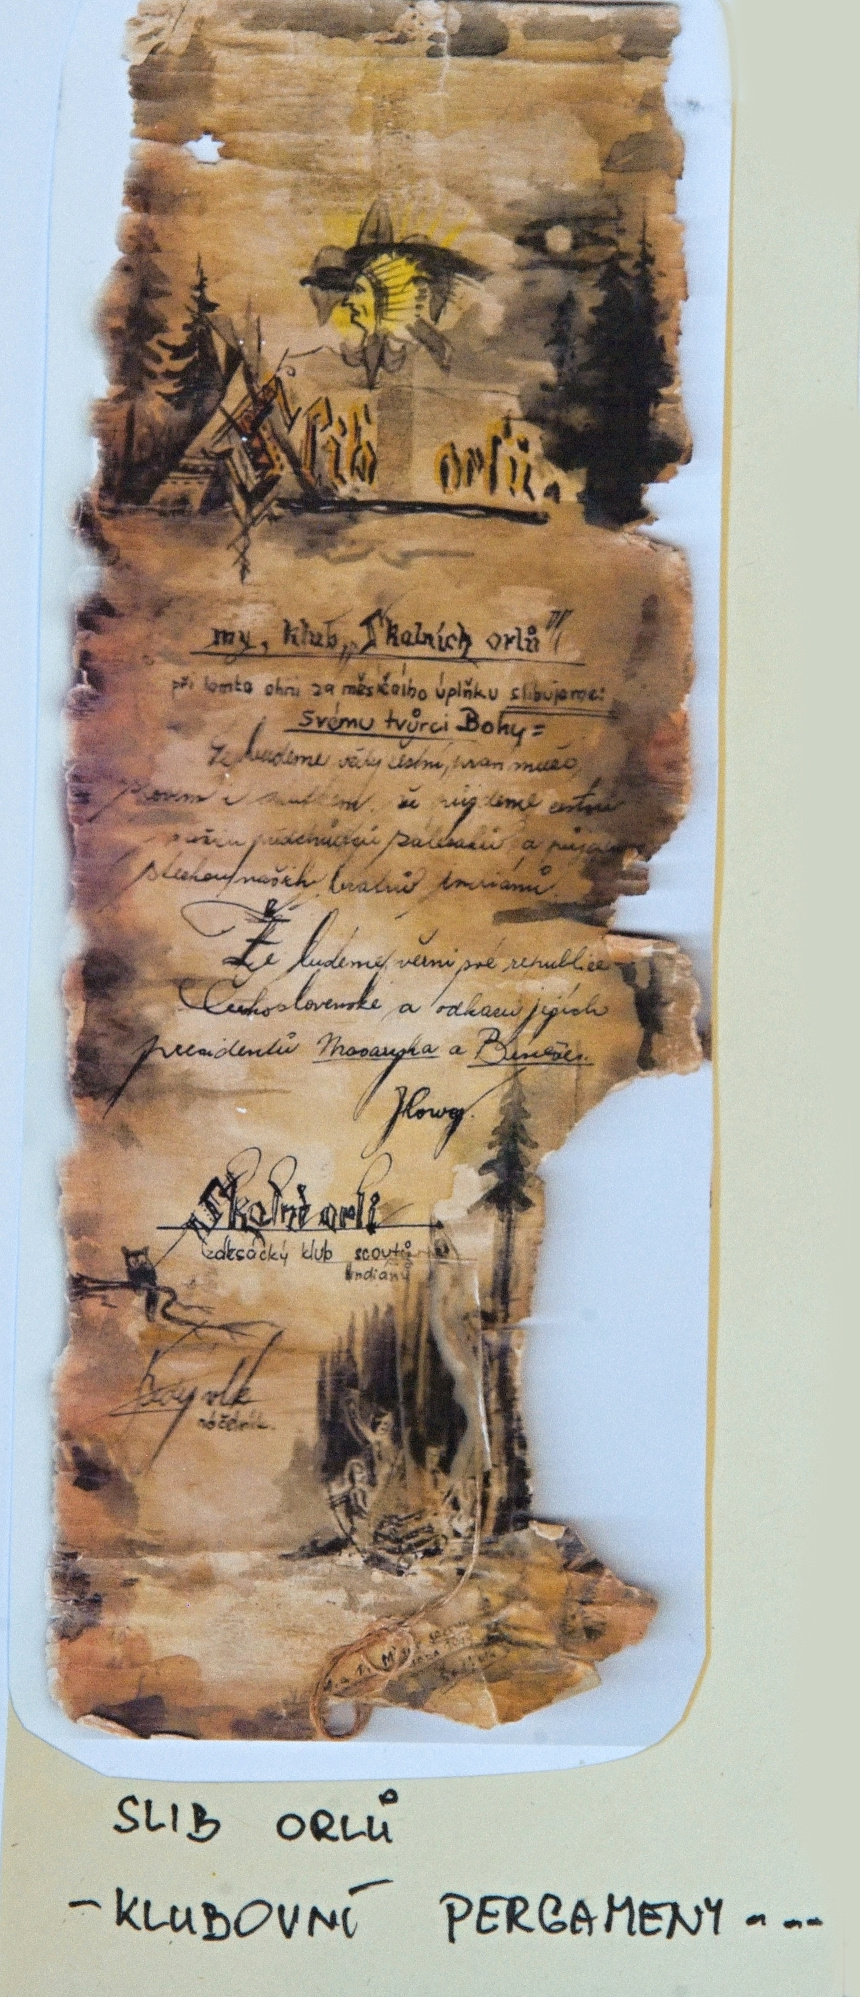 Slib orlů.
my, klub „Skalních orlů"
při tomto ohni za měsíčního úplňku slibujeme:
svému tvůrci Bohu =
Že budeme vždy čestní,
slovem i skutkem, že půjdeme cestou
našich předchůdců zálesáků a
stezkou našich bratrů indiánů.
Že budeme věrni své republice
Československé a odkazu jejích
presidentů Masaryka a Beneše.
Howg.
Skalní orli
zálesácký klub scoutů
indiánů
vlk
náčelník.
SLIB ORLŮ
- KLUBOVNÍ PERGAMENY - - -